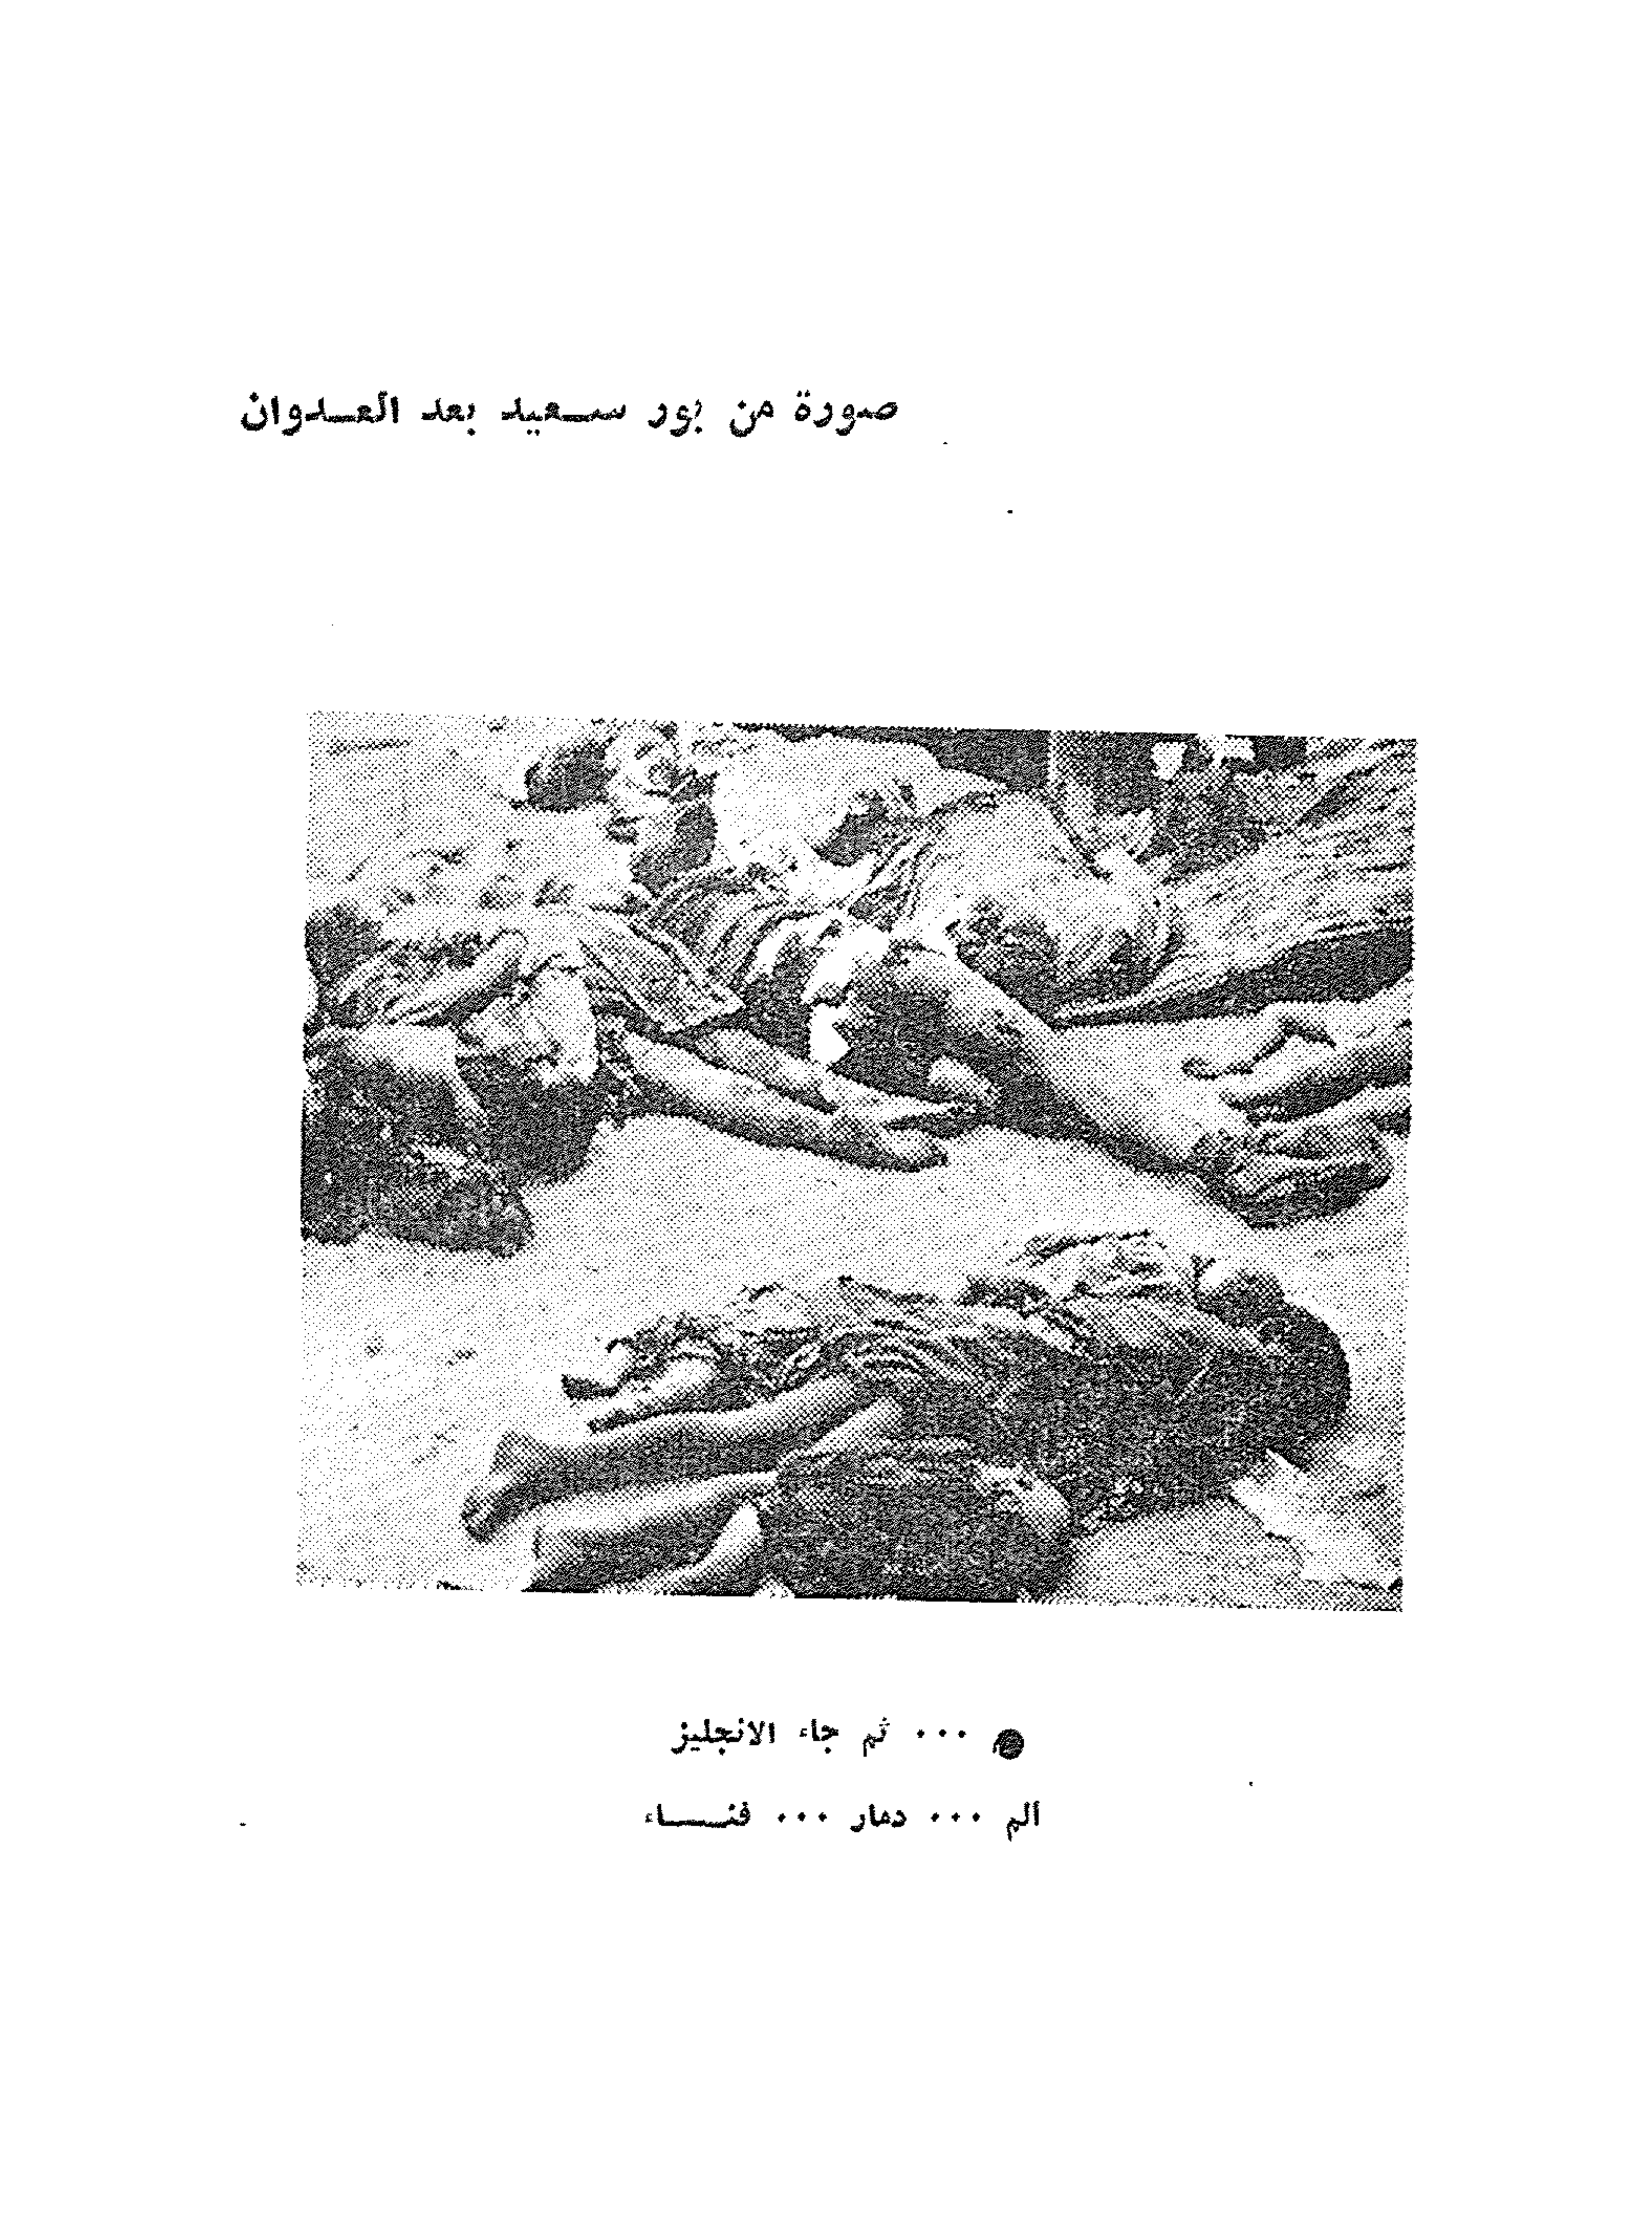 صورة من بور سعيد بعد العدوان
● ... ثم جاء الانجليز
ألم ... دمار ... فناء